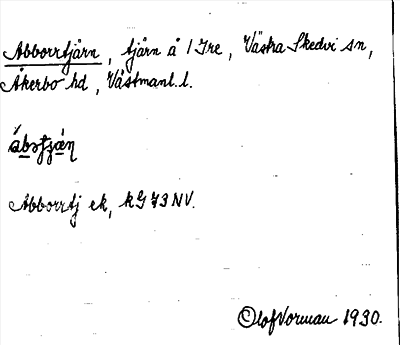 Abborrtjärn, tjärn å 1 Ire, Västra Skedvi sn,
Åkerbo hd, Västmanl. l.
ábɔtjæ̀ɳ
Abborrtj ek, kG 73 NV.
Olof Vorman 1930.